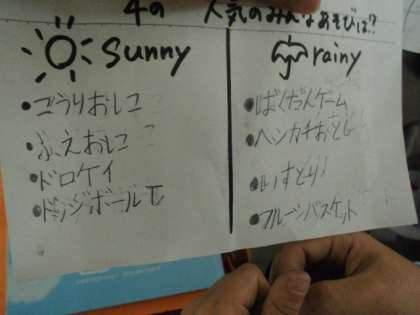 4の 人気のみんなあそびは?
sunny
・こおりおにこ
・ふえおにこ
・ドロケイ
・ドッジボール
rainy
・ばくだんゲーム
・ハンカチおとし
・いすとり!
・フルーツバスケット